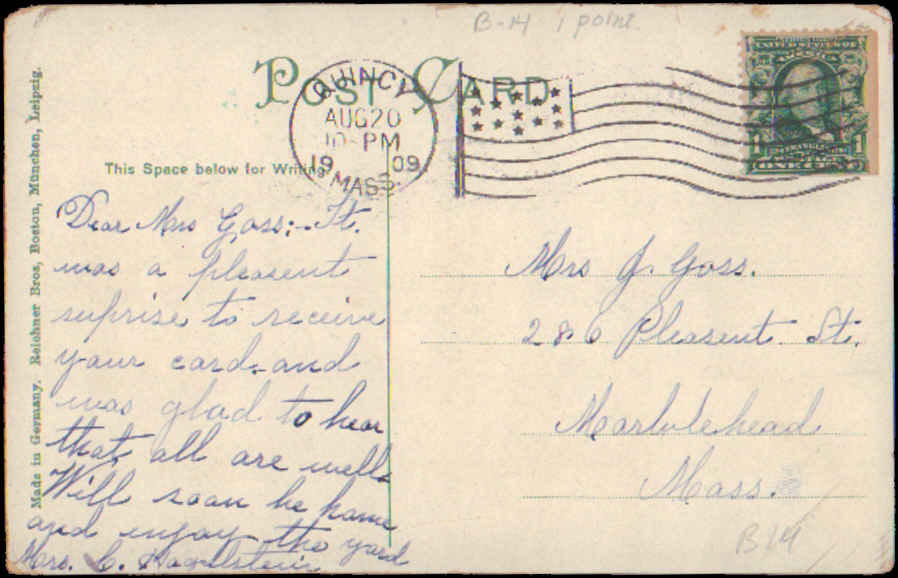 B-14 1 point
POST CARD
QUINCY
AUG 20
10-PM
19 09
MASS.
UNITED STATES OF
AMERICA
1 1
This Space below for Writing
Made in Germany. Reichner Bros, Boston, München, Leipzig.
Dear Mrs Goss:- It.
was a pleasent
suprise to receive
your card and
was glad to hear
that all are well
Will soon be home
and enjoy the yard
Mrs. C.
Mrs J. Goss.
286 Pleasent St.
Marblehead
Mass.
B14